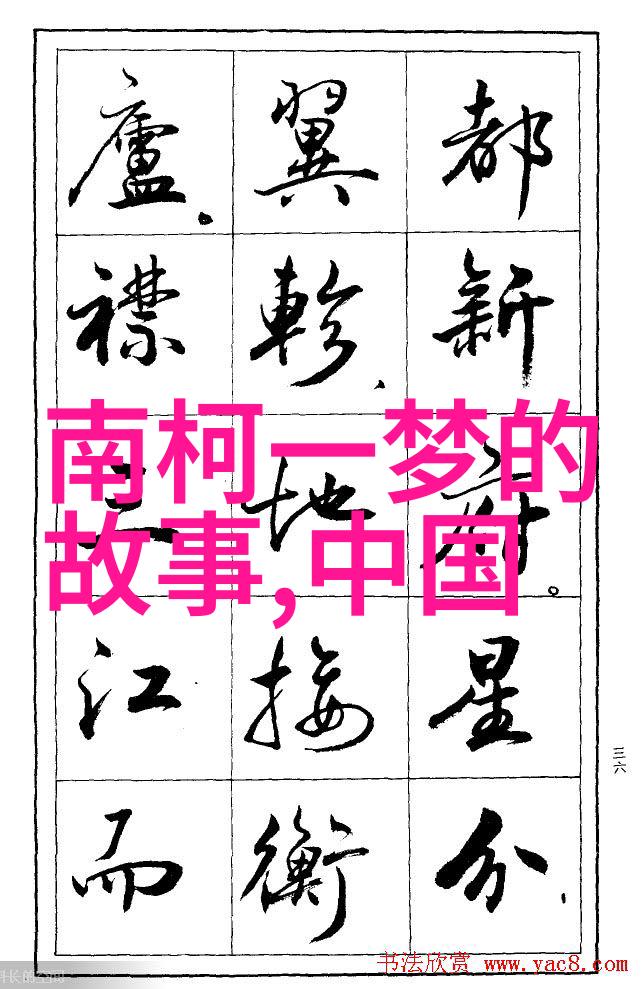 都新府。星分、
翼軫、地接衡
廬。襟三江而
南柯一梦的
故事,中国
三六
书法欣赏 www.yac8.com
长的空间